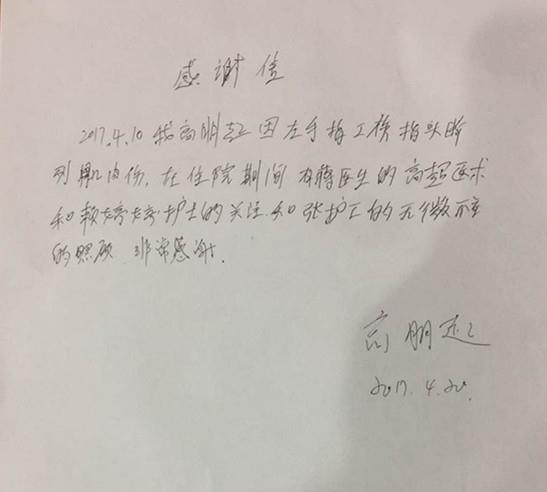 感谢信
2017.4.10 我高朋起因左手指工伤指头断
到肌肉伤,在住院期间 有蒋医生的高超医术
和赖婷婷护士的关注和张护工的无微不至
的照顾 非常感谢.
高朋起
2017.4.20.